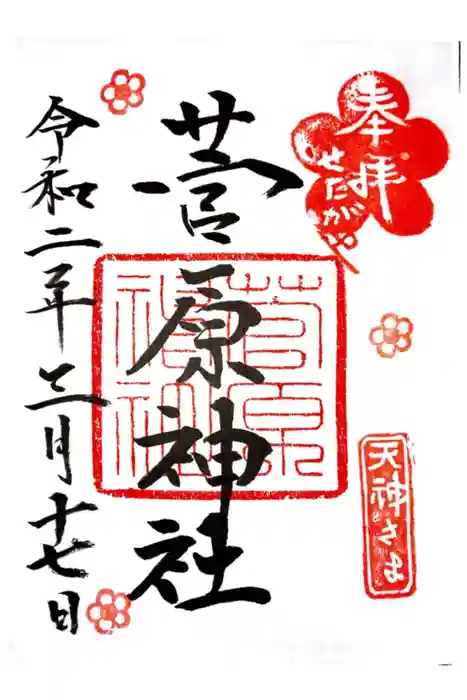 奉拝
せたがや
天神さま
菅原神社
菅原
神社
令和二年三月十七日